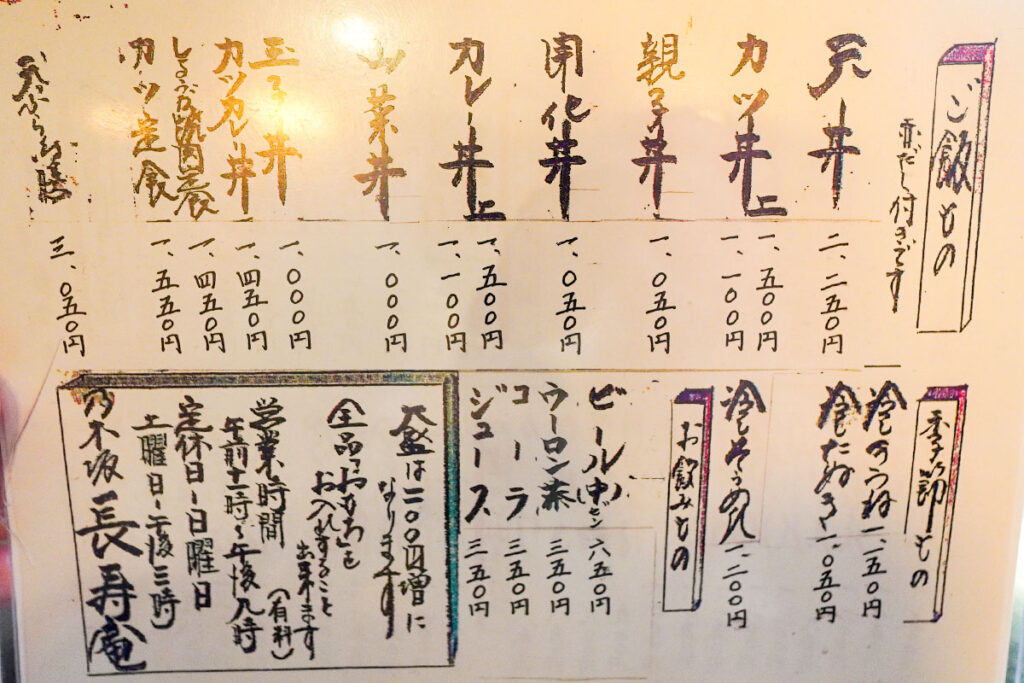 ご飯もの
赤だし付きです
天丼 二、二五〇円
カツ丼 一、一〇〇円
上 一、五〇〇円
親子丼 一、〇五〇円
開化丼 一、〇五〇円
カレー丼 一、一〇〇円
上 一、五〇〇円
山菜丼 一、〇〇〇円
玉子丼 一、〇〇〇円
カツカレー丼 一、四五〇円
一、四五〇円
カツ定食 一、五五〇円
天ぷら御膳 三、〇五〇円
季節もの
冷しきつね 一、一五〇円
冷したぬき 一、〇五〇円
冷しそうめん 一、二〇〇円
お飲みもの
ビール(中ビン) 六五〇円
ウーロン茶 三五〇円
コーラ 三五〇円
ジュース 三五〇円
大盛は二〇〇円増に
なります
全品に「おもち」を
お入れすること
出来ます
(有料)
営業時間
午前十一時〜午後九時
定休日ー日曜日
土曜日ー午後三時
乃木坂 長寿庵